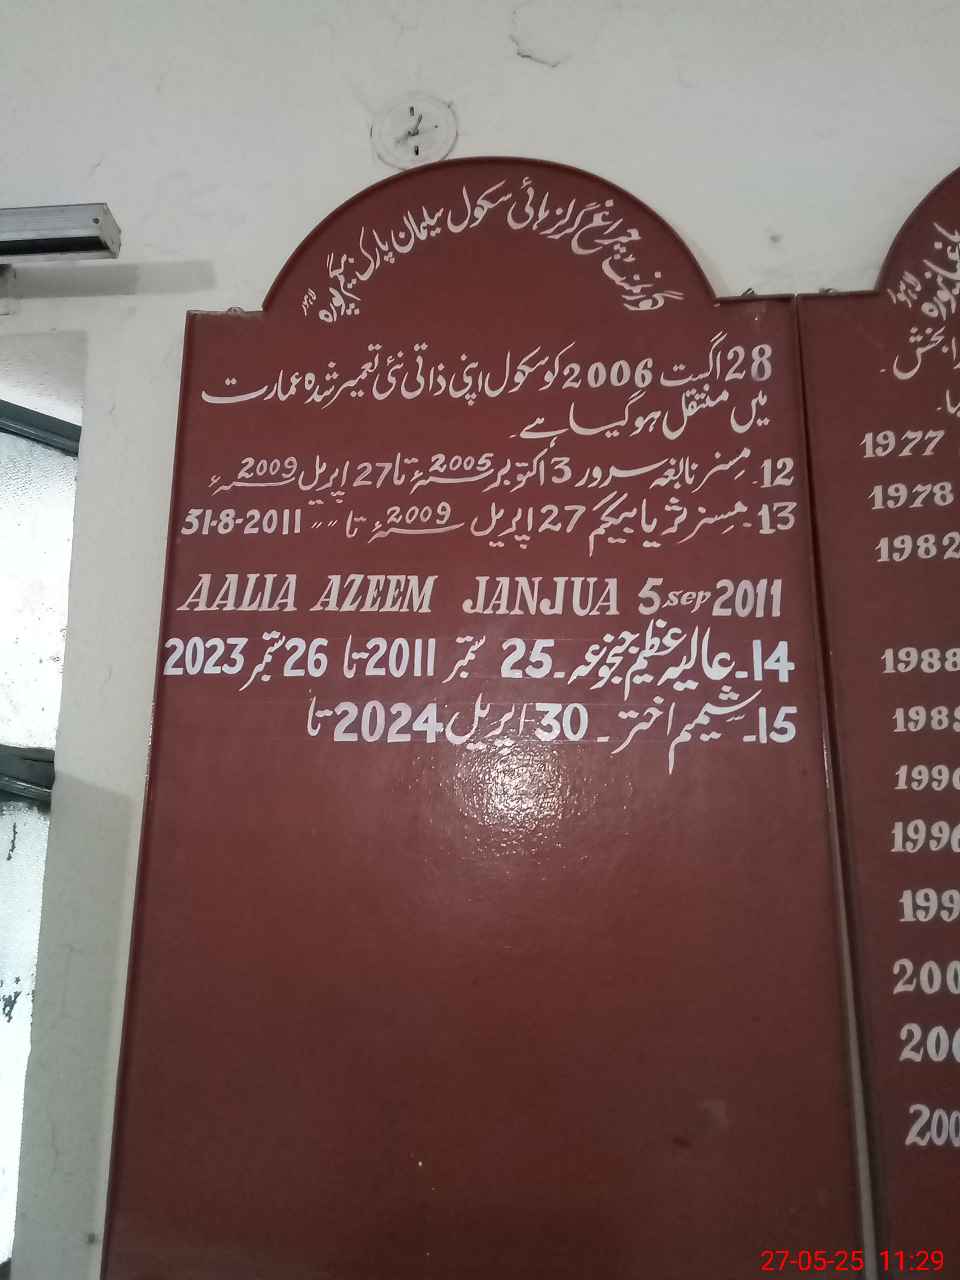 گورنمنٹ چراغ گرلز ہائی سکول سلیمان پارک بیگم پورہ لاہور
28 اگست 2006 کو سکول اپنی ذاتی نئی تعمیر شدہ عمارت
میں منتقل ہو گیا ہے۔
12۔ مسز نابغہ سرور 3 اکتوبر 2005ء تا 27 اپریل 2009ء
13۔ مسز ثریا بیگم 27 اپریل 2009ء تا ״ ״ 31-8-2011
AALIA AZEEM JANJUA 5 sep 2011
14۔ عالیہ عظیم جنجوعہ۔ 25 ستمبر 2011 تا 26 ستمبر 2023
15۔ شمیم اختر۔ 30 اپریل 2024 تا
باغبانپورہ لاہور
بخش۔
1977
1978
1982
1988
1996
27-05-25 11:29